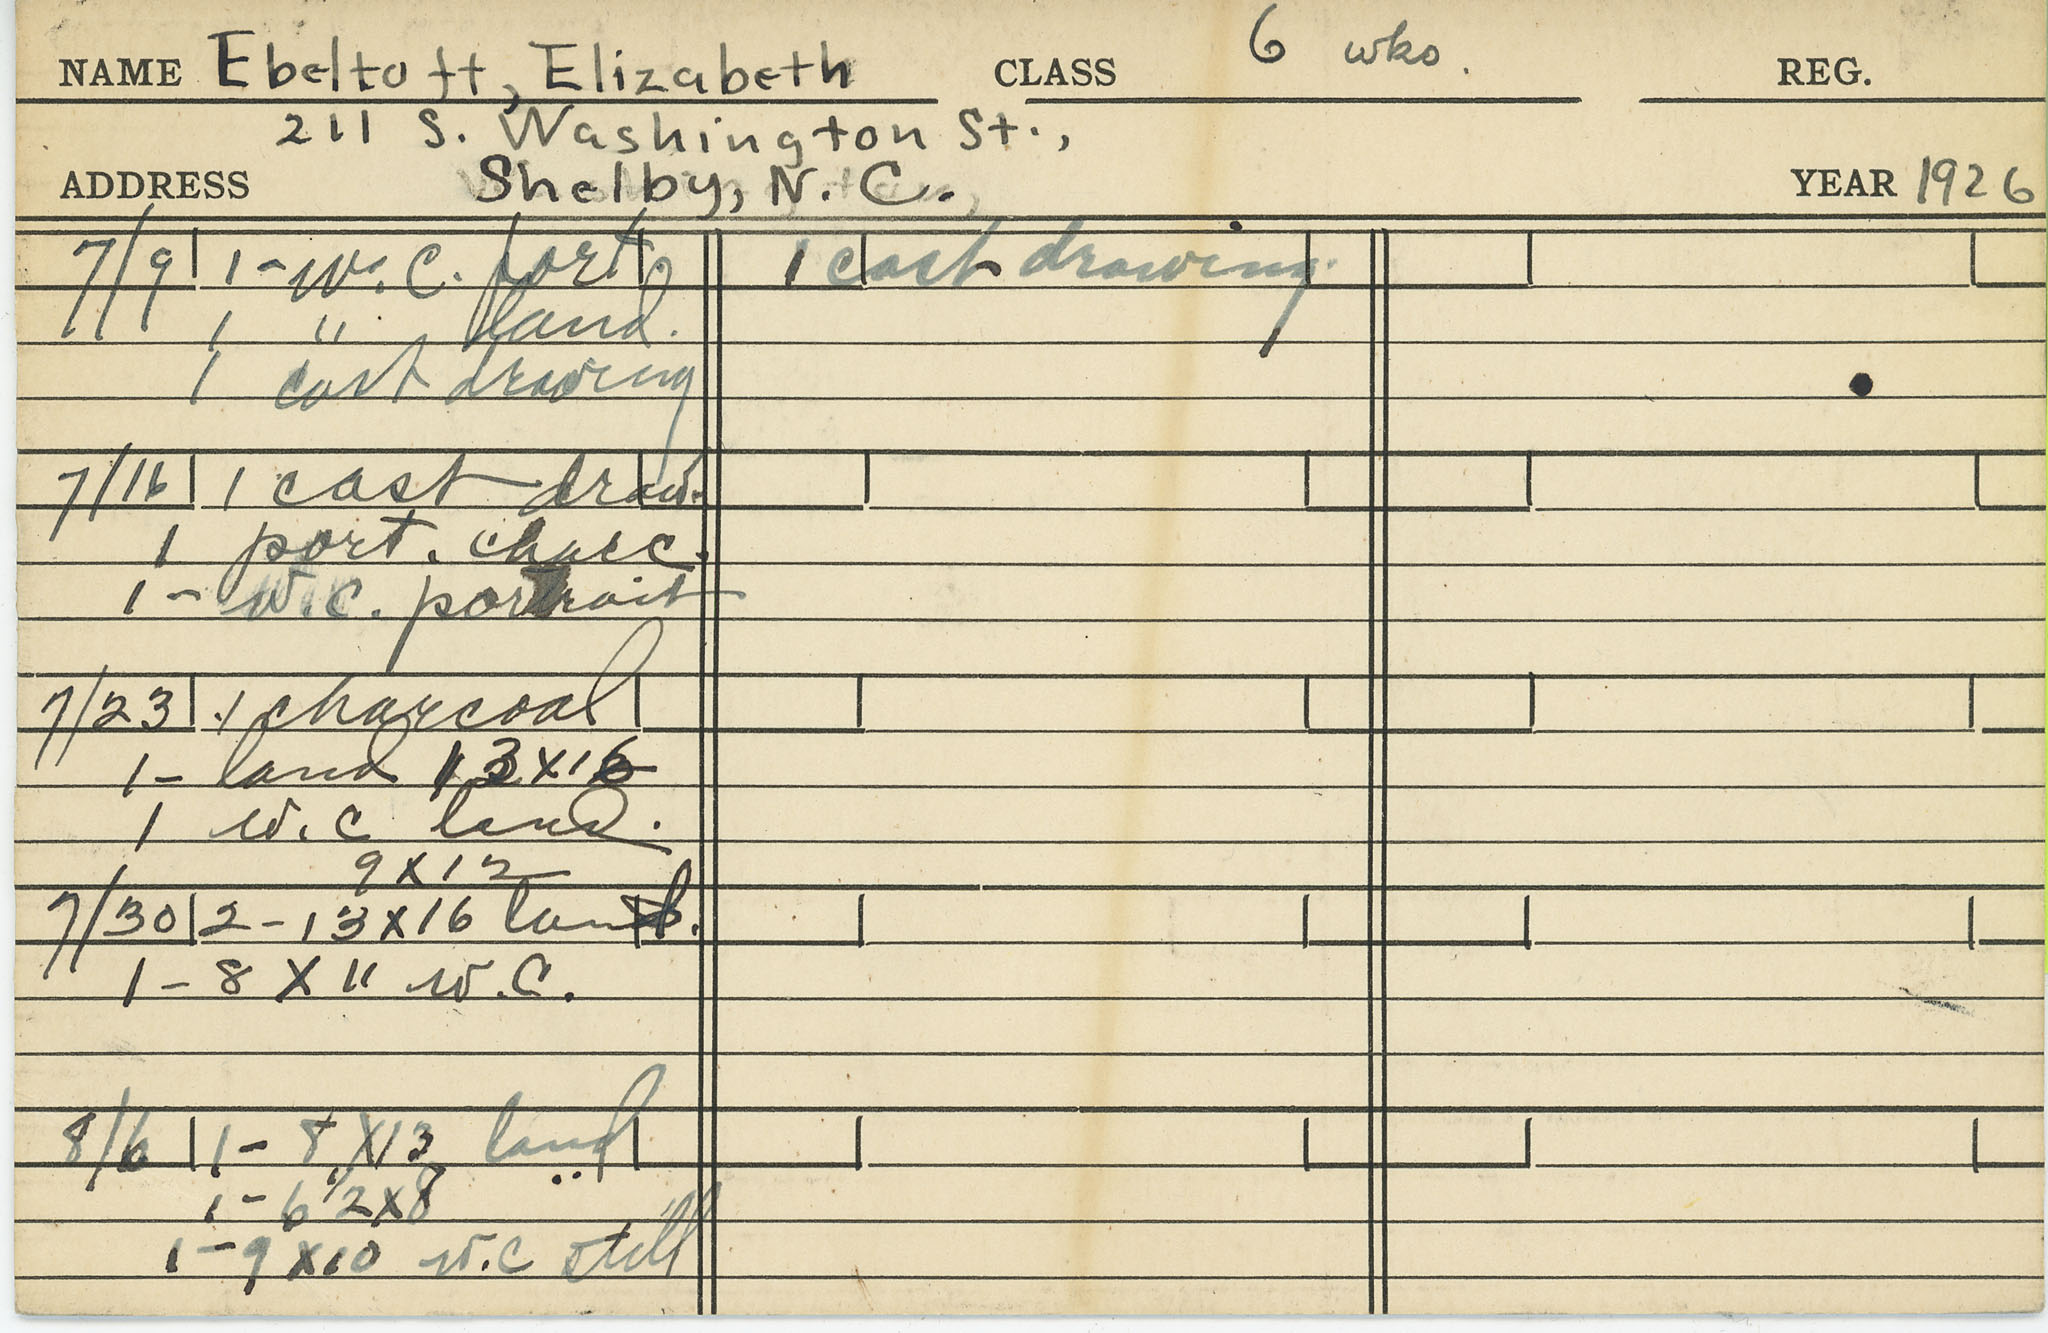 NAME Ebeltoft, Elizabeth CLASS 6 wks. REG.
211 S. Washington St.,
ADDRESS Shelby, N. C. YEAR 1926
7/9 1 - W. C. port 1 cast drawing
1 " land.
1 cast drawing
7/16 1 cast draw.
1 port. charc.
1 - W.C. portrait
7/23 1 charcoal
1 - land 13 x 16
1 W.C land.
9 X 12
7/30 2 - 13 x 16 land.
1 - 8 X 11 W.C.
8/6 1 - 8 X 13 land
1 - 6 1/2 x 8 "
1 - 9 x 10 W.C still